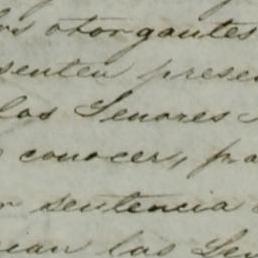 los otorgantes
senten presen
las Senores
conocer, pa
sentencia
las Sen